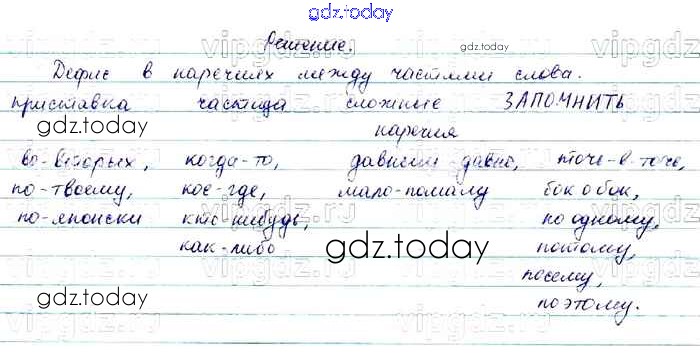 gdz.today
Решение.
gdz.today
Дефис в наречиях между частями слова.
приставка частица сложные ЗАПОМНИТЬ
gdz.today
наречия
во-вторых, когда-то, давным-давно, точь-в-точь,
по-твоему, кое-где, мало-помалу бок о бок,
по-японски кто-нибудь, по одному,
как-либо gdz.today потому,
gdz.today посему,
поэтому.